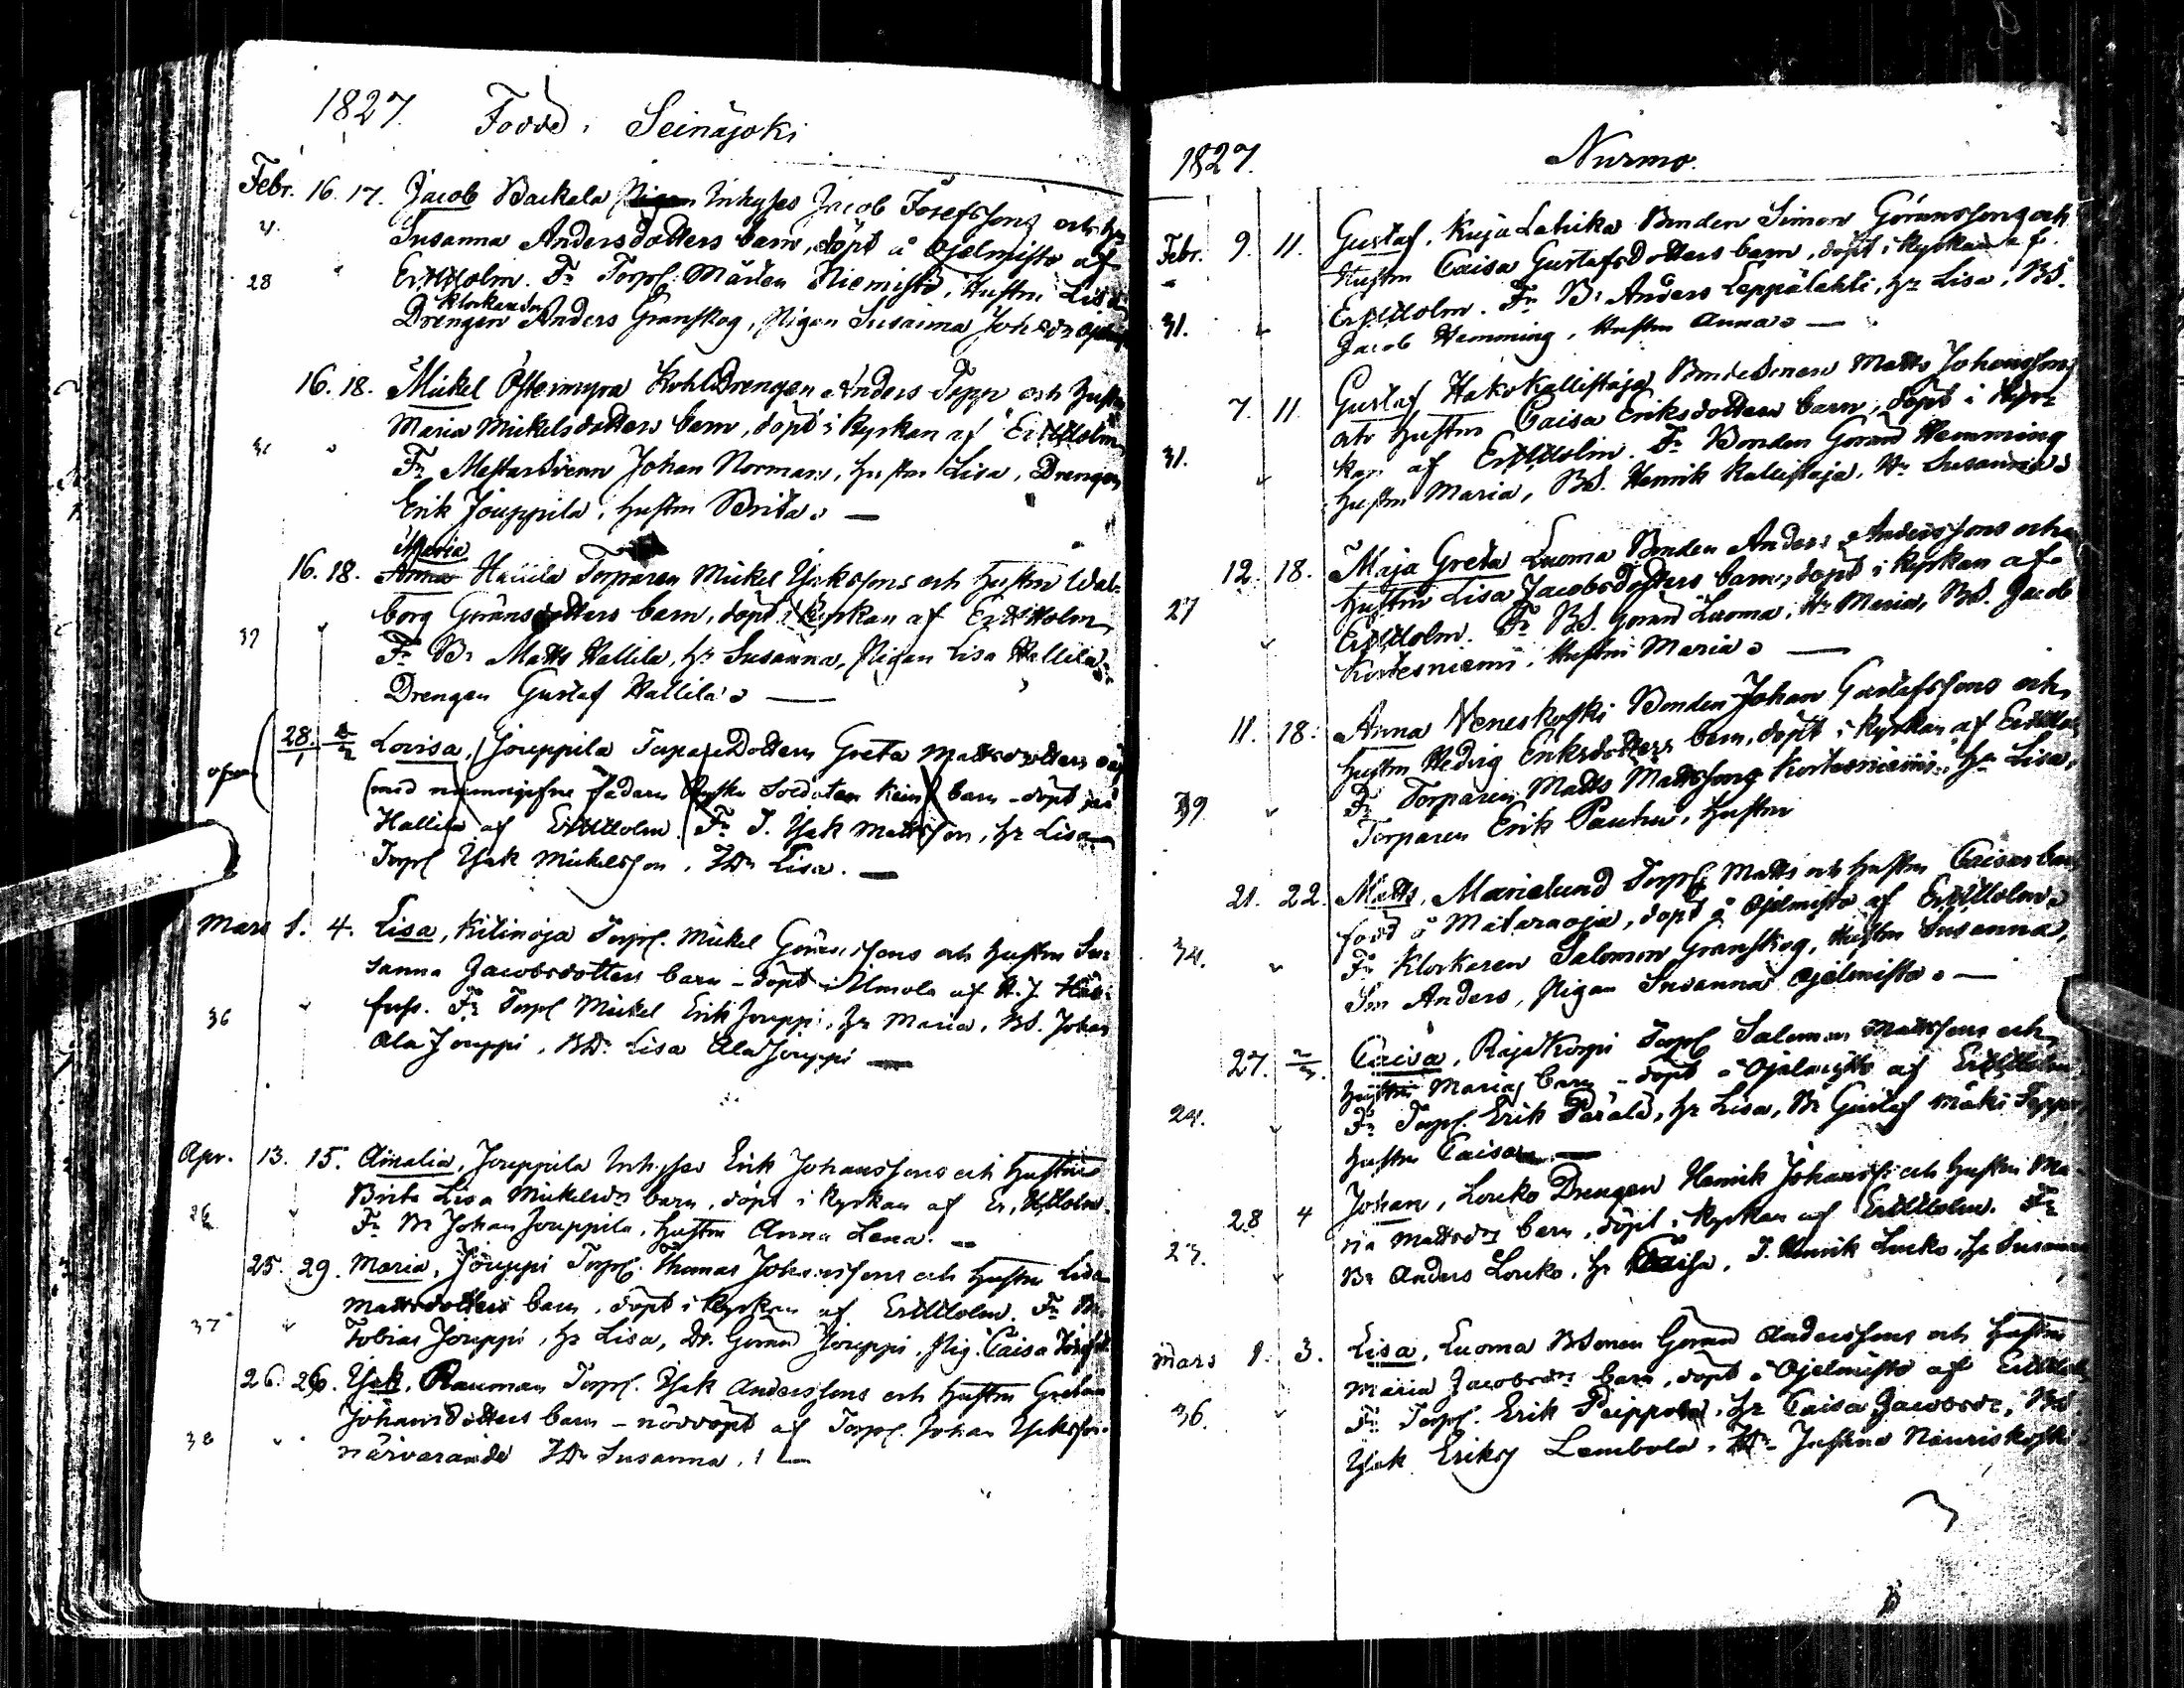 1827. Födde. Seinäjoki
Febr. 16. 17. Jacob Backala Inhyses Jacob Josefssons och
Susanna Andersdotters barn, döpt å Ojelmisto af
28 ErWHolm. Fr Torpf. Mårten Niemistö, Hustru Lisa
Klockarens
Drengen Anders Granskog, Pigan Susanna
16. 18. Mickel Östermyra KohlDrengen Anders Topp och Hustru
Maria Mickelsdotters barn, döpt i Kyrkan af ErWHolm
31 Fr MästarSvenn Johan Norman, hustru Lisa, Drengen
Erik Jouppila, hustru Brita. —
Maria
16. 18. Anna Hallila Torparen Mickel Isakssons och hustru Wal-
borg Göransdotters barn, döpt i Kyrkan af ErWHolm
37 Fr Br Matts Hallila, Hr Susanna, Pigan Lisa Hallila
Drengen Gustaf Hallila. —
28. Lovisa, Jouppila TorpareDottern Greta Mattsdotters
(med namngifne fadern Ryska Soldaten) barn - döpt
Hallila af ErWHolm. Fr T. Isak Mattsson, hr Lisa
Torpf Isak Mickelsson, TDr Lisa. —
Mars 1. 4. Lisa, Kitinoja Torpf. Mickel Göranssons och hustru Su-
sanna Jacobsdotters barn - döpt i Ilmola af
36 Fr Torpf Mickel Erik Jouppi, hr Maria, BS. Johan
Ala Jouppi, BDr Lisa Ala Jouppi —
Apr. 13. 15. Amalia, Jouppila Inhyses Erik Johanssons och hustru
Brita Lisa Mickelsdr barn, döpt i kyrkan af Er, WHolm.
26 Fr Br Johan Jouppila, hustru Anna Lena. —
25. 29. Maria, Jouppi Torpf. Thomas Johanssons och hustru Lisa
Mattsdotters barn, döpt i Kyrkan af ErWHolm. Fr Br
37 Tobias Jouppi, hr Lisa, Dr. Göran Jouppi, Pig. Caisa
26. 26. Isak, Rauman Torpf. Isak Anderssons och hustru Greta
Johansdotters barn - nöddöpt af Torpf. Johan Isaksson
38 närvarande TDr Susanna. —
1827. Nurmo.
Febr. 9. 11. Gustaf, Kujalahika Bonden Simon Göranssons och
Hustru Caisa Gustafsdotters barn, döpt i Kyrkan af
31. ErWHolm. Fr Br Anders Leppälahti, hr Lisa, BS.
Jacob Hemming, Hustru Anna. —
7. 11. Gustaf Hakokallistaja BondeSonen Matts Johanssons
och hustru Caisa Eriksdotters barn, döpt i Kyr-
31. kan af ErWHolm. Fr Bonden Göran Hemming
hustru Maria, BS. Henrik Kallistaja, Hr Susanna
12. 18. Maja Greta Luoma Bonden Anders Anderssons och
hustru Lisa Jacobsdotters barn, döpt i Kyrkan af
27 ErWHolm. Fr BS. Göran Luoma, Hr Maria, BS. Jacob
Kortesniemi, Hustru Maria. —
11. 18. Anna Veneskoski Bonden Johan Gustafssons och
hustru Hedvig Eriksdotters barn, döpt i kyrkan af
39 Fr Torparen Matts Mattsson Kortesniemi, hr Lisa,
Torparen Erik Pauhu, hustru
21. 22. Matts, Marielund Torpf. Matts och hustru Caisas barn
född å Mataraoja, döpt å Ojelmisto af ErWHolm
34. Fr Klockaren Salomon Granskog, Hustru Susanna,
Son Anders, Pigan Susanna Ojelmisto. —
27. Caisa, Rajakorpi Torpf Salomon Mattssons och
hustru Marias barn - döpt å Ojelmisto af ErWHolm
24. Fr Torpf. Erik Perälä, hr Lisa, Br Gustaf Mäki
hustru Caisa —
28 4 Johan, Louko Drengen Henrik Johanss: och hustru Ma-
ria Mattsdrs barn, döpt i kyrkan af ErWHolm. Fr
27. Br Anders Louko, hr Caisa, T. Henrik Louko, hr Susanna
Mars 1. 3. Lisa, Luoma BSonen Göran Anderssons och hustru
Maria Jacobsdrs barn, döpt å Ojelmisto af
36. Fr Torpf. Erik Peippola, hr Caisa Jacobsdr, BS.
Isak Eriks Lembola, Justina